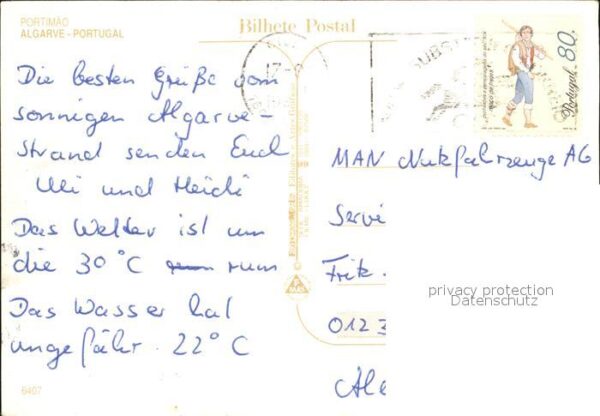 PORTIMÃO
ALGARVE - PORTUGAL
Bilhete Postal
Die besten Grüße vom
sonnigen Algarve-
strand senden Euch
Uli und Heidi
Das Wetter ist um
die 30°C rum
Das Wasser hat
ungefähr 22°C
6407
80.
Portugal
MAN Nutzfahrzeuge AG
Servi
Fritz.
privacy protection
Datenschutz
0123
Ale